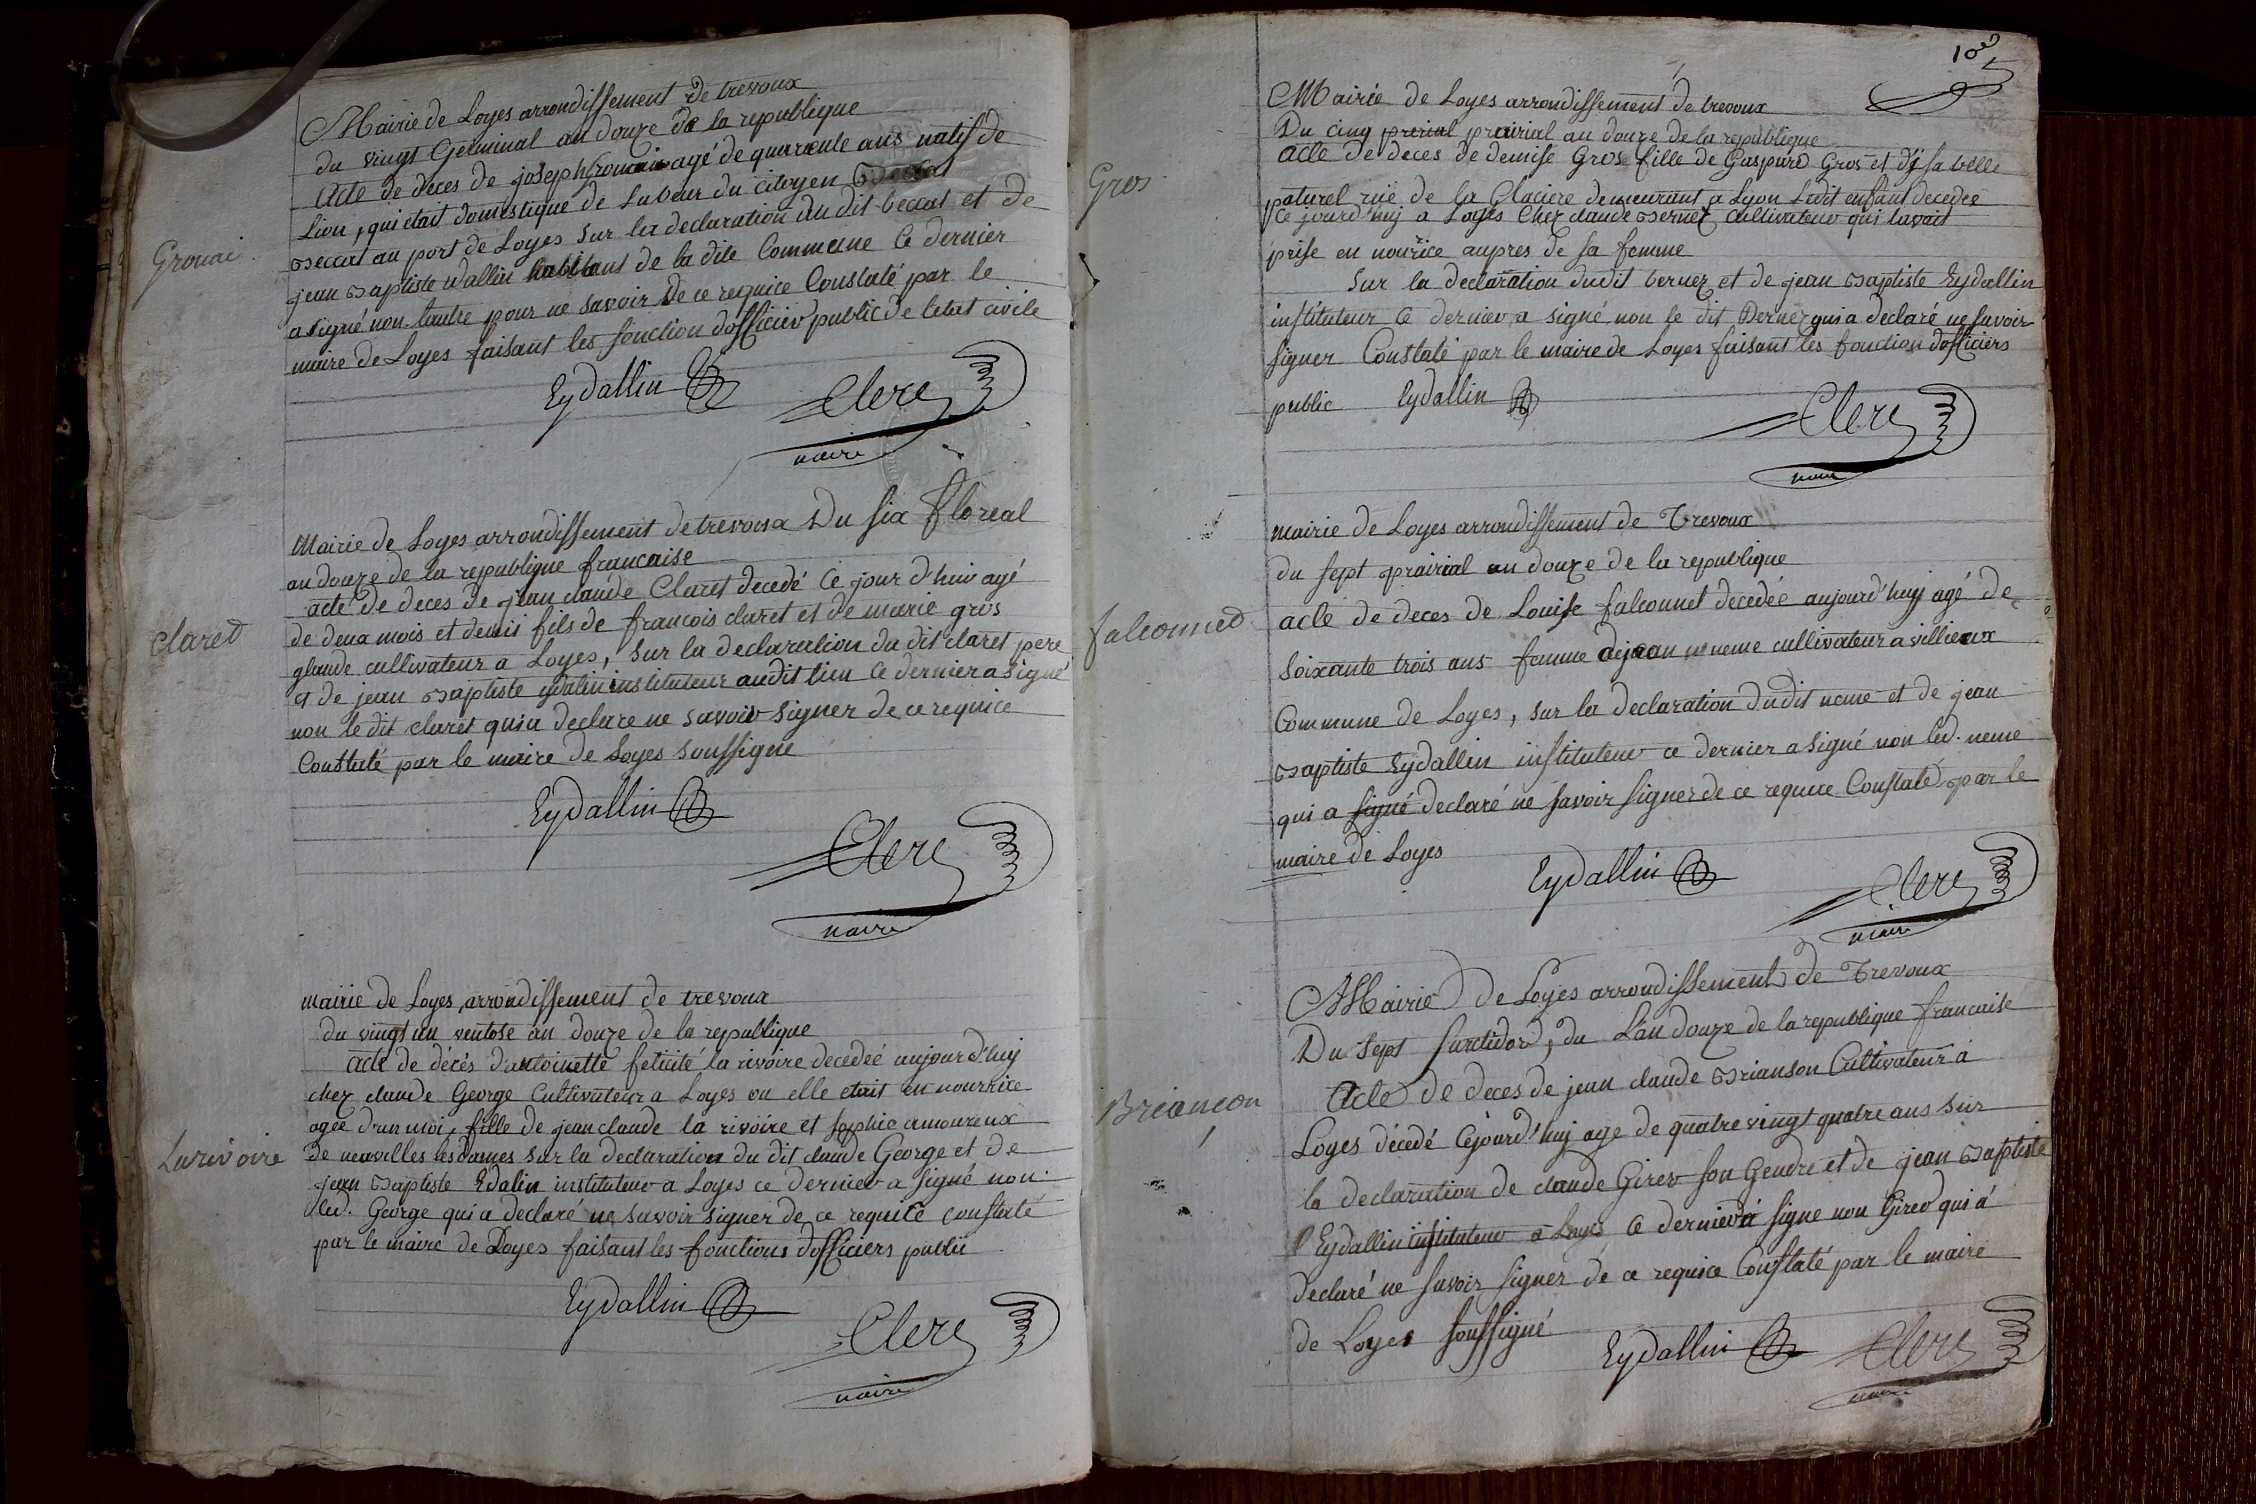 Mairie de Loyes arrondissement de trevoux
du vingt Germinal an douze de la republique
Acte de deces de joseph Grouai agé de quarente ans natif de
Lion, qui etait domestique de labeur du citoyen Beccat
Beccat au port de Loyes sur la declaration du dit beccat et de
jean Baptiste idallin habitant de la dite Commune Ce dernier
a signé non lautre pour ne savoir de ce requice Constaté par le
maire de Loyes faisant les fonction dofficier public de letat civile
Grouai
Eydallin
Clerc
maire
Mairie de Loyes arrondissement de trevoux Du six floreal
an douze de la republique francaise
acte de deces de jean claude Claret decedé Ce jour d'hui agé
de deux mois et demis fils de francois claret et de marie gros
glaude cultivateur a Loyes, sur la declaration du dit claret pere
et de jean Baptiste ydalin instituteur audit lieu Ce dernier a signé
non le dit claret qui a declare ne savoir signer de ce requice
Constaté par le maire de Loyes soussigné
Claret
Eydallin
Clerc
maire
mairie de Loyes, arrondissement de trevoux
du vingt un ventose an douze de la republique
acte de décès d'antoinette felicité la rivoire decedeé aujourd'huj
chez claude George Cultivateur a Loyes ou elle etait en nourrice
agée d'un moi, fille de jean claude la rivoire et sophie amoureux
de neuvilles les dames sur la declaration du dit claude George et de
jean Baptiste Edalin instituteur a Loyes ce dernier a signé non
led. George qui a declaré ne savoir signer de ce requice constaté
par le maire de Loyes faisant les fonctions dofficiers public
Larivoire
Eydallin
Clerc
maire
10
Mairie de Loyes arrondissement de trevoux
Du cinq prerial prairial an douze de la republique
acte de deces de demise Gros fille de Gaspard Gros et d'isabelle
paturel rüe de la Glaciere demeurant a Lyon Ladit enfant decedée
Ce jourd'huj a Loyes Chez claude Bernez cultivateur qui lavait
prise en nourice aupres de sa femme
Sur la declaration dudit bernez et de jean Baptiste Eydallin
instituteur Ce dernier a signé non le dit Bernez qui a declaré ne savoir
signer Constaté par le maire de Loyes faisant les fonction dofficiers
public Eydallin
Gros
Clerc
maire
mairie de Loyes arrondissement de Trevoux
du sept prairial an douze de la republique
acte de deces de Louise falconnet décedée aujourd'huj agé de
soixante trois ans femme de jean neme cultivateur a villieux
Commune de Loyes, sur la declaration dudit neme et de jean
Baptiste Eydallin instituteur ce dernier a signé non led. neme
qui a signé declaré ne savoir signer de ce requice Constaté par le
maire de Loyes
falconnet
Eydallin
Clerc
maire
Mairie de Loyes arrondissement de Trevoux
Du sept fructidor, du L'an douze de la republique francaise
Acte de deces de jean claude Brianson Cultivateur a
Loyes décedé Cejourd'huj age de quatre vingt quatre ans sur
la declaration de claude Girer son Gendre et de jean Baptiste
Eydallin instituteur a Loyes Ce dernier a signe non Girer qui a
declaré ne savoir signer de ce requice Constaté par le maire
de Loyes soussigné
Briancon
Eydallin
Clerc
maire